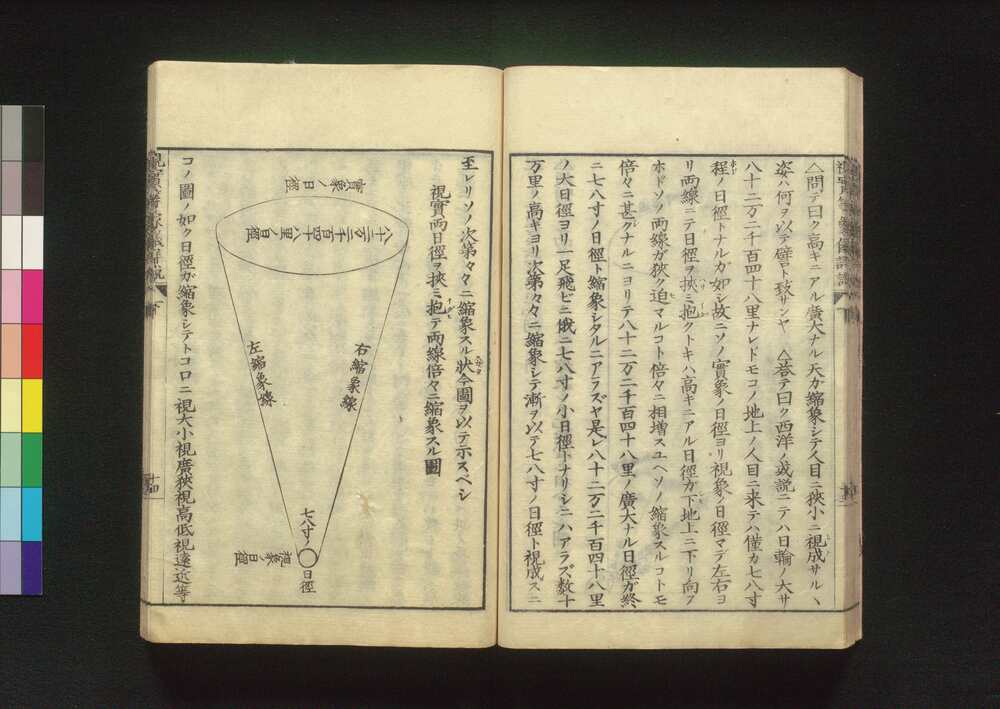 △問テ曰ク高キニアル廣大ナル天ガ縮象シテ人目ニ狹小ニ視成サルヽ
姿ハ何ヲ以テ譬ト致サンヤ △答テ曰ク西洋ノ或説ニテハ日輪ノ大サ
八十二万二千百四十八里ナレドモコノ地上ノ人目ニ来テハ僅カ七八寸
程ノ日徑トナルガ如シ故ニソノ實象ノ日徑ヨリ視象ノ日徑マデ左右ヨ
リ両線ニテ日徑ヲ挾ミ抱クトキハ高キニアル日徑ガ下地上ニ下リ向フ
ホドソノ両線ガ狹ク迫マルコト倍々ニ相増スユヘソノ縮象スルコトモ
倍々ニ甚グナルニヨリテ八十二万二千百四十八里ノ廣大ナル日徑ガ終
ニ七八寸ノ日徑ト縮象シタルニアラズヤ是レ八十二万二千百四十八里
ノ大日徑ヨリ一足飛ビニ俄ニ七八寸ノ小日徑トナリシニハアラズ数十
万里ノ高キヨリ次第々々ニ縮象シテ漸ヲ以テ七八寸ノ日徑ト視成スニ
至レリソノ次第々々ニ縮象スル状今圖ヲ以テ示スベシ
視實両日徑ヲ挾ミ抱テ両線倍々ニ縮象スル圖
實象ノ日徑
八十二万二千百四十八里ノ日徑
右縮象線
左縮象線
七八寸ノ
日徑
視象ノ日徑
コノ圖ノ如ク日徑ガ縮象シテトコロニ視大小視廣狹視高低視遠近等
十四